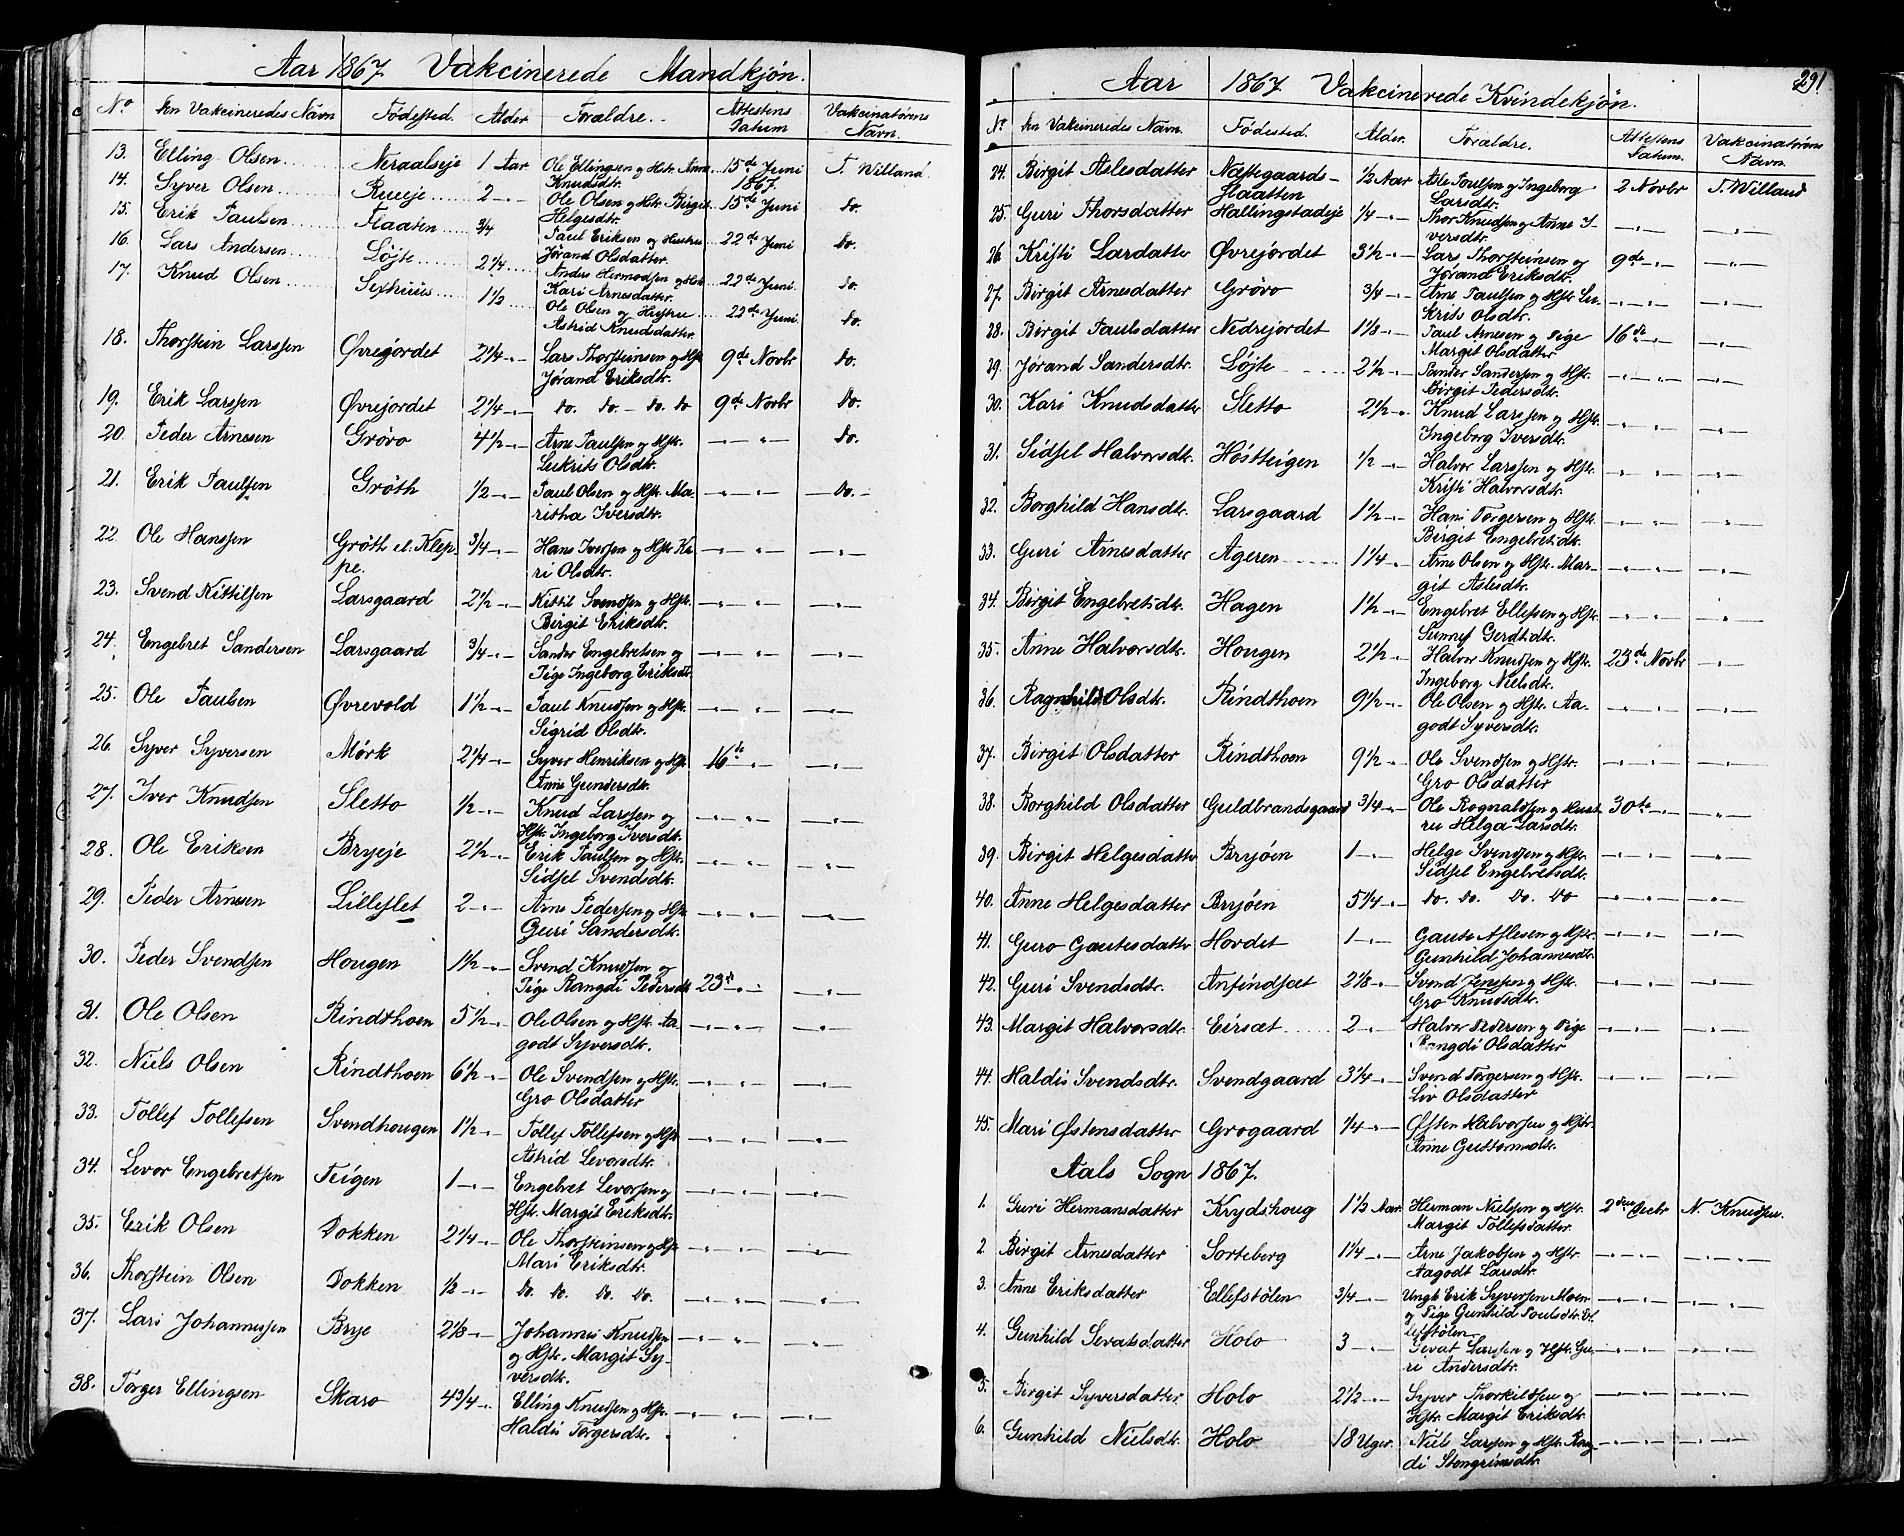 Aar 1867 Vakcinerede Mandkjøn.
No. Den Vakcineredes Navn Fødested. Alder Forældre. Attestens Datum Vakcinatørens Navn.
13. Elling Olsen Neraalseje 1 Aar Ole Ellingsen og Hstr. Anne Knudsdtr. 15de Juni 1867. T. Willand
14. Syver Olsen Rueeje 2 -„- Ole Olsen og Hstr. Birgit Helgesdtr. 15de Juni do.
15. Erik Paulsen Flaaten 3/4 Paul Eriksen og Hustru Jørand Olsdatter. 22de Juni do.
16. Lars Andersen Løjte 2 1/4 Anders Hermodsen og Hstr. Kari Arnesdatter. 22de Juni do.
17. Knud Olsen Sexhuus 1 1/2 Ole Olsen og Hustru Astrid Knudsdatter. 22de Juni do.
18. Thorstein Larssen Øvrejordet 2 1/4 -„- Lars Thorsteinsen og Hstr Jørand Eriksdtr. 9de Novbr do.
19. Erik Larssen Øvrejordet 2 1/4 -„- do. do. - do. do 9de Novbr do.
20. Peder Arnesen Grøvo 4 1/2 -„- Arne Paulsen og Hstr. Lukrits Olsdtr. -„- „ do.
21. Erik Paulsen Grøth 1/2 -„- Paul Olsen og Hstr. Maritha Iversdtr. -„- „ - do. -
22. Ole Hanssen Grøth el. Kleppe. 3/4 -„- Hans Iversen og Hstr Kari Olsdtr. -„- „- -„-
23. Svend Kittilsen Larsgaard 2 1/2 -„- Kittil Svendsen og Hstr. Birgit Eriksdtr. -„- „- -„-
24. Engebret Sandersen Larsgaard 3/4 -„- Sander Engebretsen og Pige Ingeborg Eriksdtr. -„- „- -„-
25. Ole Paulsen Øvrevold 1 1/2 -„- Paul Knudsen og Hstr. Sigrid Olsdtr. -„- „- -„-
26. Syver Syversen Mørk 2 1/4 -„- Syver Henriksen og Hstr Anne Gundersdtr. 16de -„- -„-
27. Iver Knudsen Sletto 1/2 -„- Knud Larssen og Hstr. Ingeborg Iversdtr. -„- „- -„-
28. Ole Eriksen Bryeje 2 1/2 -„- Erik Paulsen og Hstr. Sidsel Svendsdtr. -„- „- -„-
29. Peder Arnesen Lilleslet 2 -„- Arne Pedersen og Hstr Guri Sandersdtr. -„- „- -„-
30. Peder Svendsen Hougen 1 1/2 -„- Svend Knudsen og Pige Rangdi Pedersdtr 23d -„- -„-
31. Ole Olsen Rindthoen 5 1/2 -„- Ole Olsen og Hstr. Aagodt Syversdtr. -„- „- -„-
32. Niels Olsen Rindthoen 6 1/2 -„- Ole Svendsen og Hstr. Gro Olsdatter -„- „- -„-
33. Tollef Tollefsen Svendhougen 1 1/2 -„- Tollef Tollefsen og Hstr Astrid Levorsdtr. -„- „- -„-
34. Levor Engebretsen Teigen 1 -„- Engebret Levorsen og Hstr. Margit Eriksdtr. -„- „- -„-
35. Erik Olsen Dokken 2 1/4 -„- Ole Thorsteinsen og Hstr Mari Eriksdtr. -„- „- -„-
36. Thorstein Olsen Dokken 1/2 -„- do. do. do. do. -„- „- -„-
37. Lars Johannessen Brye 2 1/3 -„- Johannes Knudsen og Hstr. Margit Syversdtr. -„- „- -„-
38. Torger Ellingsen Skaro 4 3/4 -„- Elling Knudsen og Hstr. Haldis Torgersdtr. -„- „- -„-
291
Aar 1867 Vakcinerede Kvindekjøn.
No Den Vakcineredes Navn. Fødested. Alder. Forældre. Attestens Datum. Vakcinatørens Navn.
24. Birgit Aslesdatter Næstegaards-flaatten 1/2 Aar Asle Poulsen og Ingeborg Larsdtr. 2 Novbr T. Willand
25. Guri Thorsdatter Hallingstadeje 1/4 -„- Thor Knudsen og Anne Iversdtr. -„- „- -„-
26. Kristi Larsdatter Øvrejordet 3 1/2 -„- Lars Thorsteinsen og Jørand Eriksdtr. 9de -„- -„-
27. Birgit Arnesdatter Grøvo 3/4 -„- Arne Paulsen og Hstr Lukrits Olsdtr. -„- „- -„-
28. Birgit Paulsdatter Nedrejordet 1 1/3 -„- Paul Arnesen og Pige Margit Olsdatter. 16de -„- -„-
29. Jørand Sandersdtr. Løjte 2 1/2 -„- Sander Sandersen og Hstr. Birgit Pedersdtr. -„- „- -„-
30. Kari Knudsdatter Sletto 2 1/2 -„- Knud Larssen og Hstr. Ingeborg Iversdtr. -„- „- -„-
31. Sidsel Halvorsdtr. Høstteigen 1/2 -„- Halvor Larssen og Hstr. Kristi Halvorsdtr. -„- „- -„-
32. Borghild Hansdtr. Larsgaard 1 1/2 -„- Hans Torgersen og Hstr. Birgit Engebretsdtr. -„- „- -„-
33. Guri Arnesdatter Ageren 1 1/4 -„- Arne Olsen og Hstr. Margit Aslesdtr. -„- „- -„-
34. Birgit Engebretsdtr. Hagen 1 1/2 -„- Engebret Ellefsen og Hstr. Sunnef Gerdtsdtr. -„- „- -„-
35. Anne Halvorsdtr. Hougen 2 1/2 -„- Halvor Knudsen og Hstr. Ingeborg Nielsdtr. 23de Novbr -„-
36. Ragnhild Olsdtr. Rindthoen 9 1/2 -„- Ole Olsen og Hstr. Aagodt Syversdtr. -„- „- -„-
37. Birgit Olsdatter Rindthoen 9 1/2 -„- Ole Svendsen og Hstr. Gro Olsdatter -„- „- -„-
38. Borghild Olsdatter Guldbrandsgaard 3/4 -„- Ole Rognaldsen og Hustru Helga Larsdtr. 30te -„- -„-
39. Birgit Helgesdatter Bryøen 1 -„- Helge Svendsen og Hstr Sidsel Engebretsdtr. -„- „- -„-
40. Anne Helgesdatter Bryøen 5 1/4 -„- do. do. do. do -„- „- -„-
41. Guro Gautesdatter Hovdet 1 -„- Gaute Aslesen og Hstr. Gunhild Johannesdtr. -„- „- -„-
42. Guri Svendsdtr. Anfindsæt 2 1/3 -„- Svend Jenssen og Hstr. Gro Knudsdtr. -„- „- -„-
43. Margit Halvorsdtr. Eirsæt 2 -„- Halvor Pedersen og Pige Rangdi Olsdatter -„- „- -„-
44. Haldis Svendsdtr. Svendgaard 3 1/4 -„- Svend Torgersen og Hstr. Liv Olsdatter -„- „- -„-
45. Mari Østensdatter Grogaard 1/4 -„- Østen Halvorsen og Hstr. Anne Guttormsdtr. -„- „- -„-
Aals Sogn 1867.
1. Guri Hermansdatter Krydshoug 1 1/2 Aar. Herman Nielsen og Hstr. Margit Tollefsdatter. 2den Decbr N. Knudsen.
2 Birgit Arnesdatter Sorteberg 1 1/4 -„- Arne Jakobsen og Hstr. Aagodt Larsdtr. -„- „- -„-
3. Anne Eriksdatter Ellefstølen 3/4 -„- Ungk Erik Syversen Moen og Pige Gunhild Poulsdtr. Ellefstølen -„- „- -„-
4. Gunhild Sevatsdatter Holo 3 -„- Sevat Larssen og Hstr. Guri Andersdtr. -„- „- -„-
5. Birgit Syversdatter Holo 2 1/2 -„- Syver Thorkildsen og Hstr. Margit Eriksdtr. -„- „- -„-
6. Gunhild Nielsdtr. Holo 18 Uger. Niels Larssen og Hstr. Rangdi Stengrimsdtr. -„- „- -„-